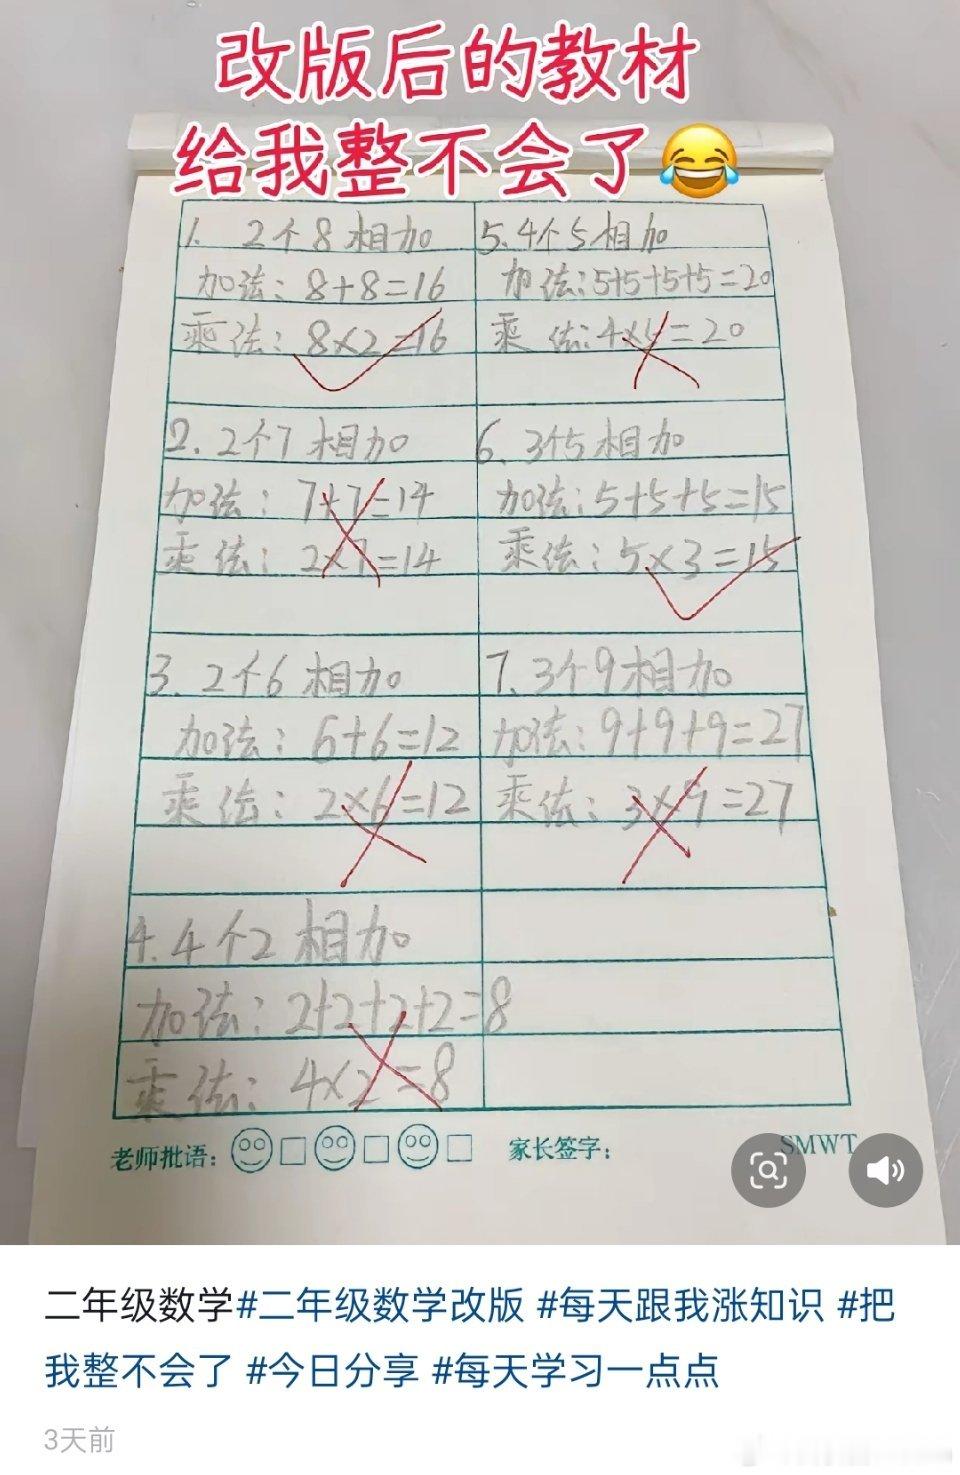 改版后的教材
给我整不会了😂
1. 2个8相加
加法：8+8=16
乘法：8×2=16
2. 2个7相加
加法：7+7=14
乘法：2×7=14
3. 2个6相加
加法：6+6=12
乘法：2×6=12
4. 4个2相加
加法：2+2+2+2=8
乘法：4×2=8
5. 4个5相加
加法：5+5+5+5=20
乘法：4×5=20
6. 3个5相加
加法：5+5+5=15
乘法：5×3=15
7. 3个9相加
加法：9+9+9=27
乘法：3×9=27
老师批语： 家长签字：
SMWT
二年级数学#二年级数学改版 #每天跟我涨知识 #把
我整不会了 #今日分享 #每天学习一点点
3天前